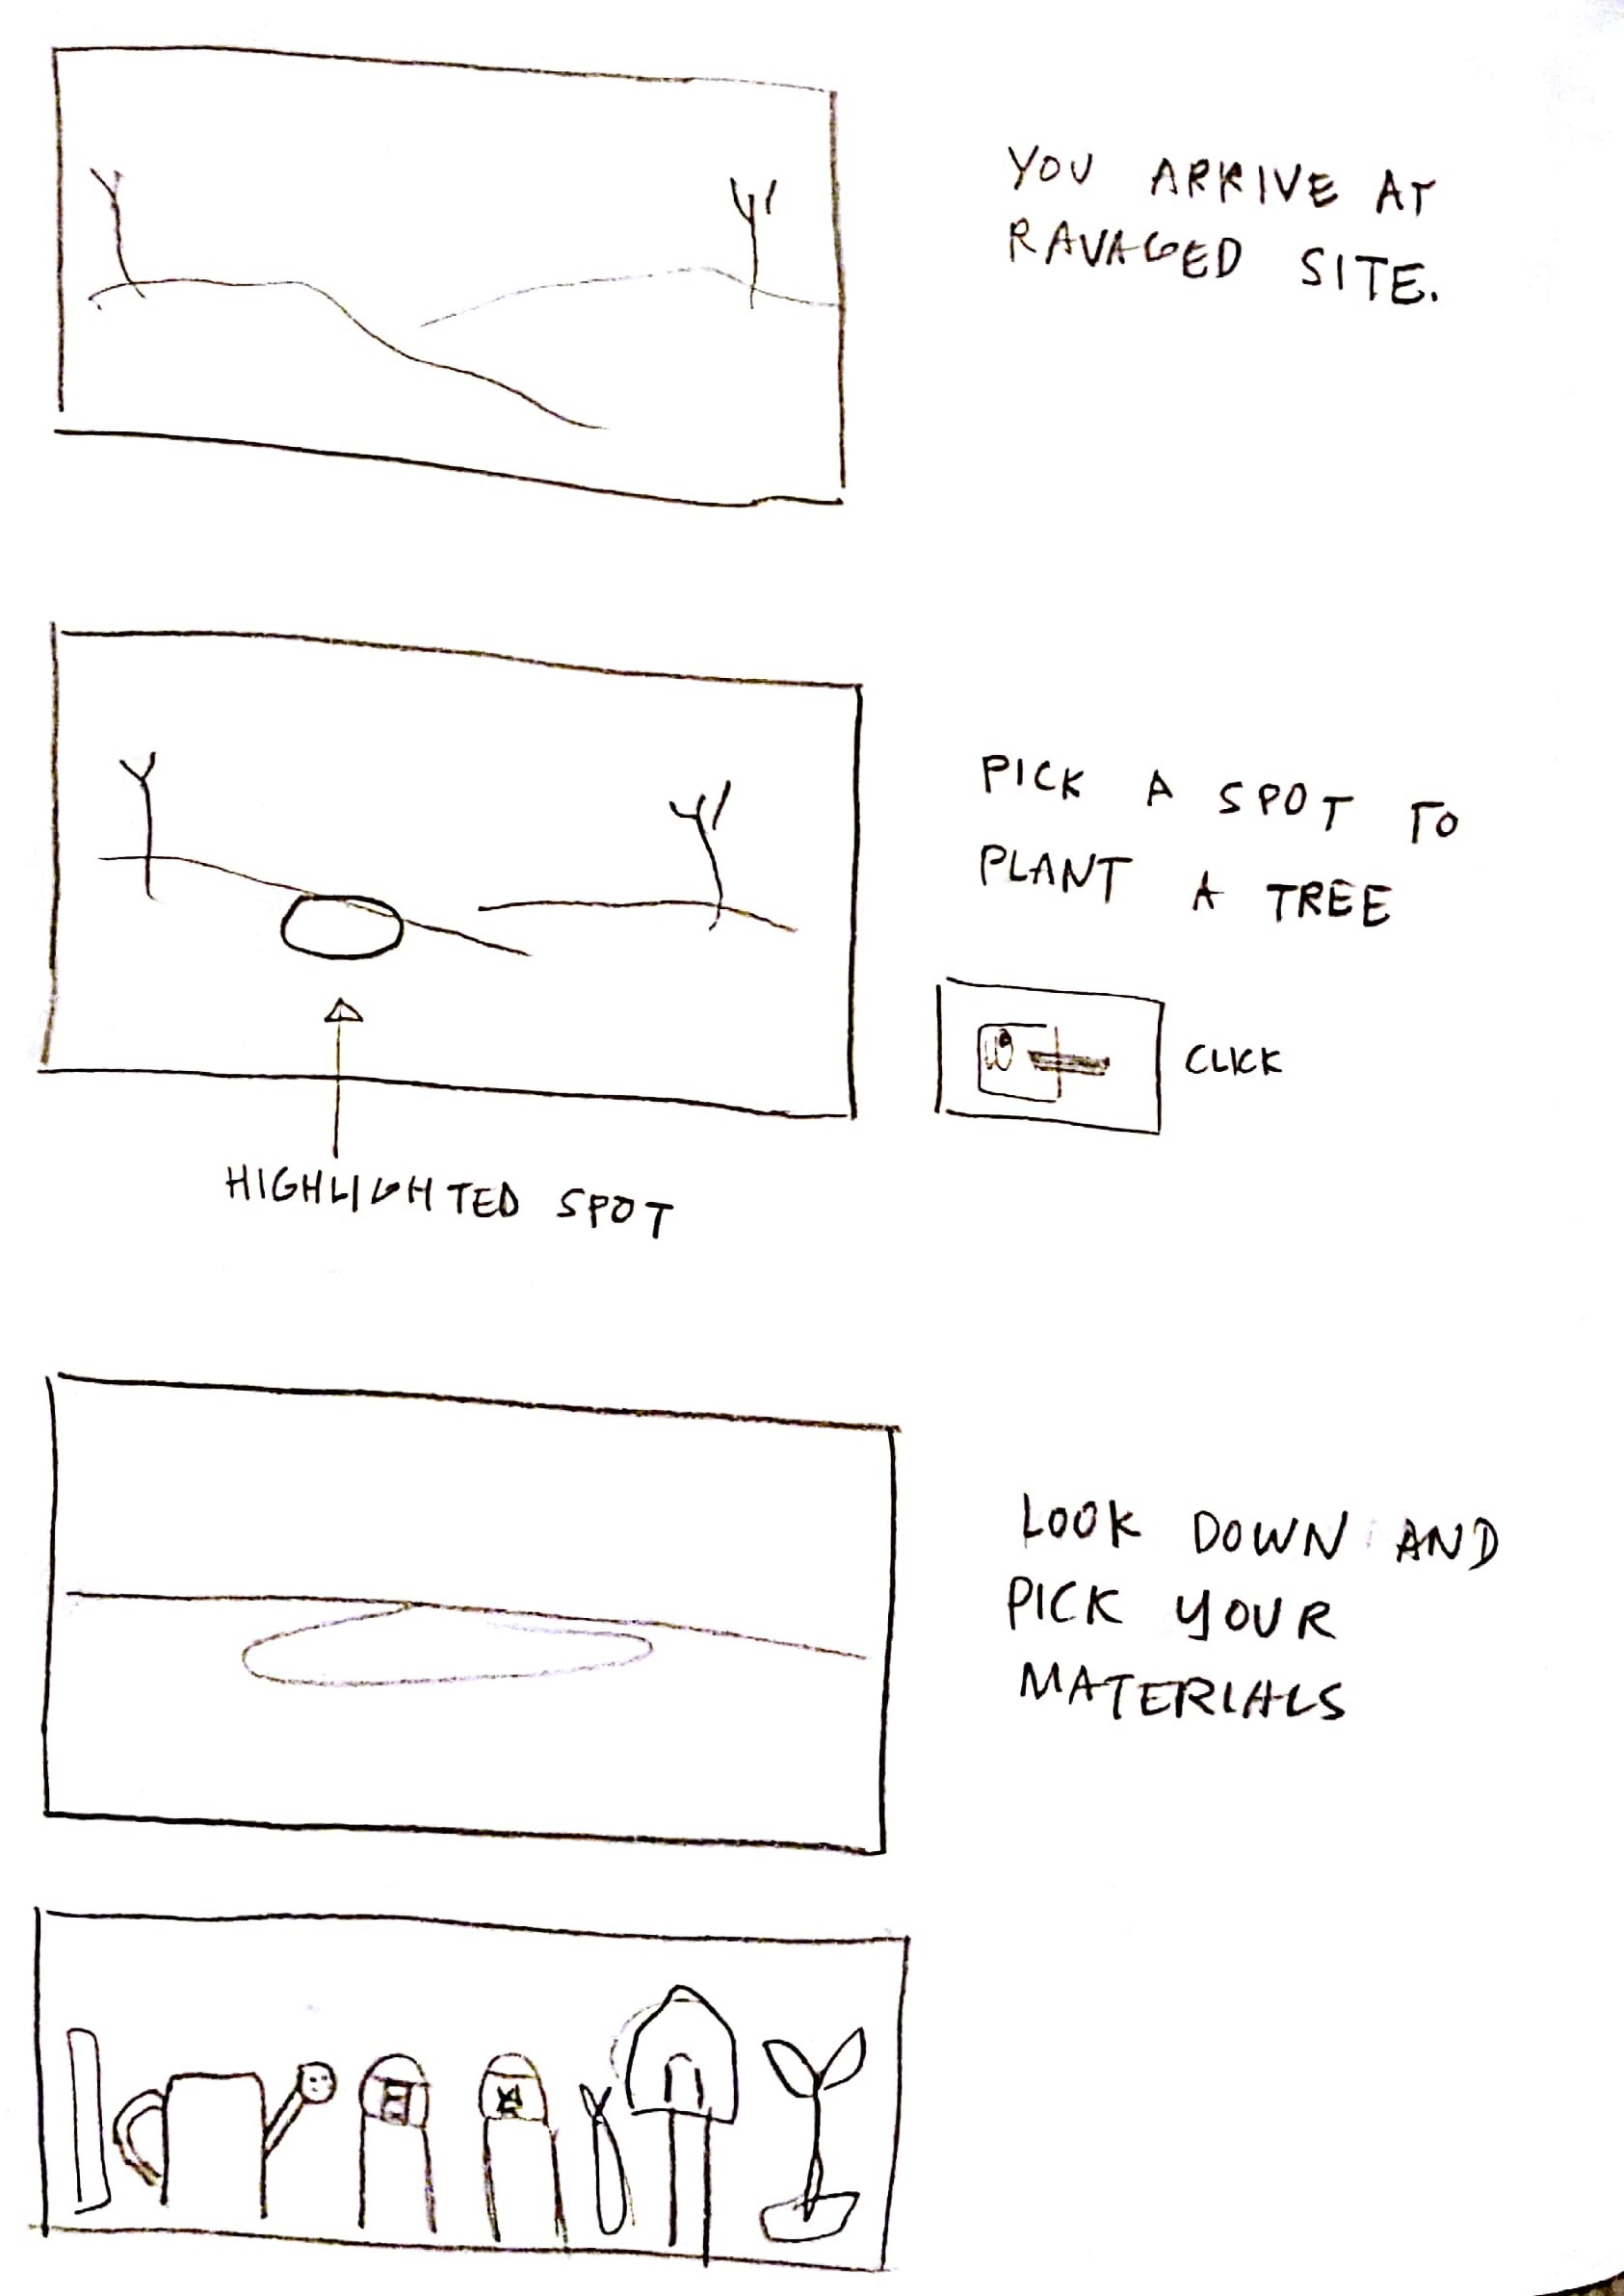 YOU ARRIVE AT
RAVAGED SITE.
PICK A SPOT TO
PLANT A TREE
CLICK
HIGHLIGHTED SPOT
LOOK DOWN AND
PICK YOUR
MATERIALS